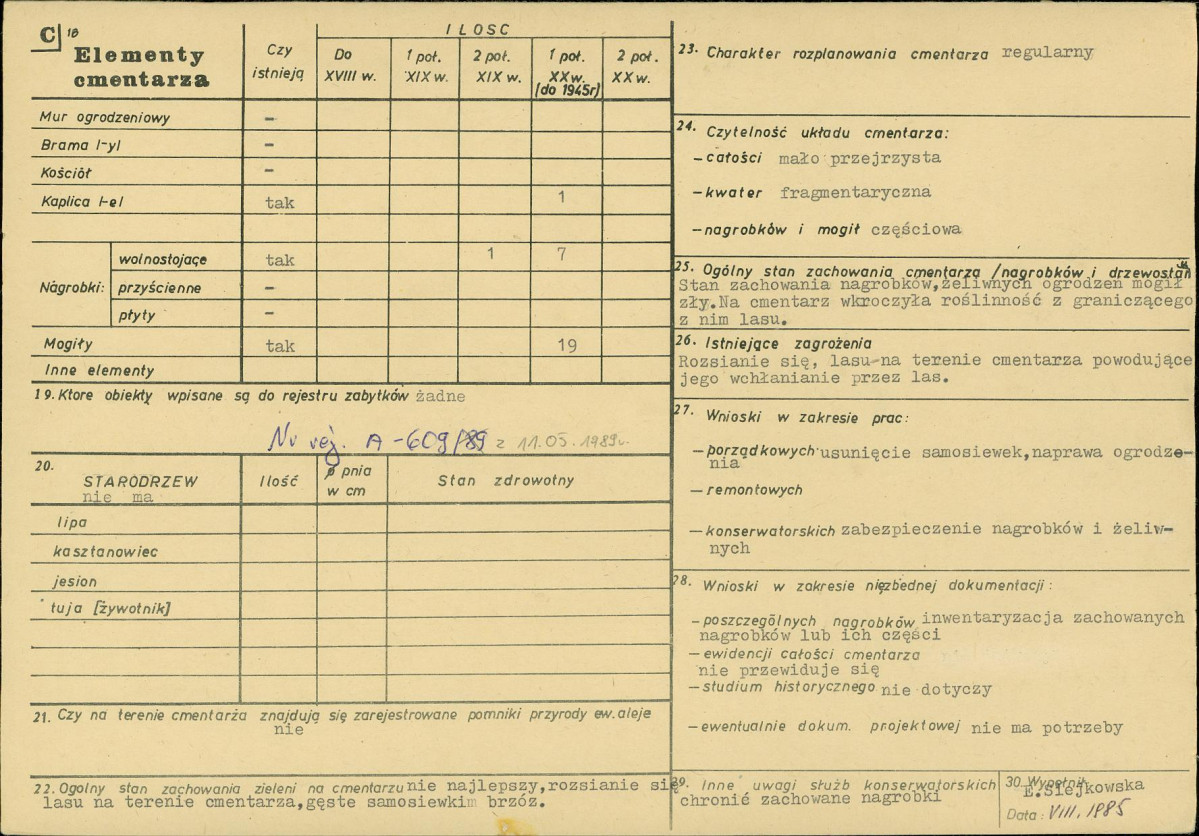 C 18
Elementy
cmentarza
Czy
istnieją
ILOSC
Do
XVIII w.
1 poł.
XIX w.
2 poł.
XIX w.
1 poł.
XX w.
(do 1945r)
2 poł.
XX w.
Mur ogrodzeniowy –
Brama l-yl –
Kościół –
Kaplica l-el tak 1
Nagrobki:
wolnostojące tak 1 7
przyścienne –
płyty –
Mogiły tak 19
Inne elementy
19. Ktore obiekty wpisane są do rejestru zabytków żadne
Nr rej. A-609/89 z 11.05.1989r.
20.
STARODRZEW
nie ma
Ilość
ø pnia
w cm
Stan zdrowotny
lipa
kasztanowiec
jesion
tuja [żywotnik]
21. Czy na terenie cmentarża znajdują się zarejestrowane pomniki przyrody ew. aleje
nie
22. Ogolny stan zachowania zieleni na cmentarzu nie najlepszy,rozsianie się
lasu na terenie cmentarza,gęste samosiewkim brzóz.
23. Charakter rozplanowania cmentarza regularny
24. Czytelność układu cmentarza:
– całości mało przejrzysta
– kwater fragmentaryczna
– nagrobków i mogił częściowa
25. Ogólny stan zachowania cmentarza /nagrobków i drzewostan
Stan zachowania nagrobków,żeliwnych ogrodzeń mogił
zły.Na cmentarz wkroczyła roślinność z graniczącego
z nim lasu.
26. Istniejące zagrożenia
Rozsianie się, lasu na terenie cmentarza powodujące
jego wchłanianie przez las.
27. Wnioski w zakresie prac:
– porządkowych usunięcie samosiewek,naprawa ogrodze-
nia
– remontowych
– konserwatorskich zabezpieczenie nagrobków i żeliw-
nych
28. Wnioski w zakresie niezbednej dokumentacji:
– poszczególnych nagrobków inwentaryzacja zachowanych
nagrobków lub ich części
– ewidencji całości cmentarza
nie przewiduje się
– studium historycznego nie dotyczy
– ewentualnie dokum. projektowej nie ma potrzeby
29. Inne uwagi służb konserwatorskich
chronić zachowane nagrobki
30. Wypełnił:
E.Slejkowska
Data: VIII. 1985